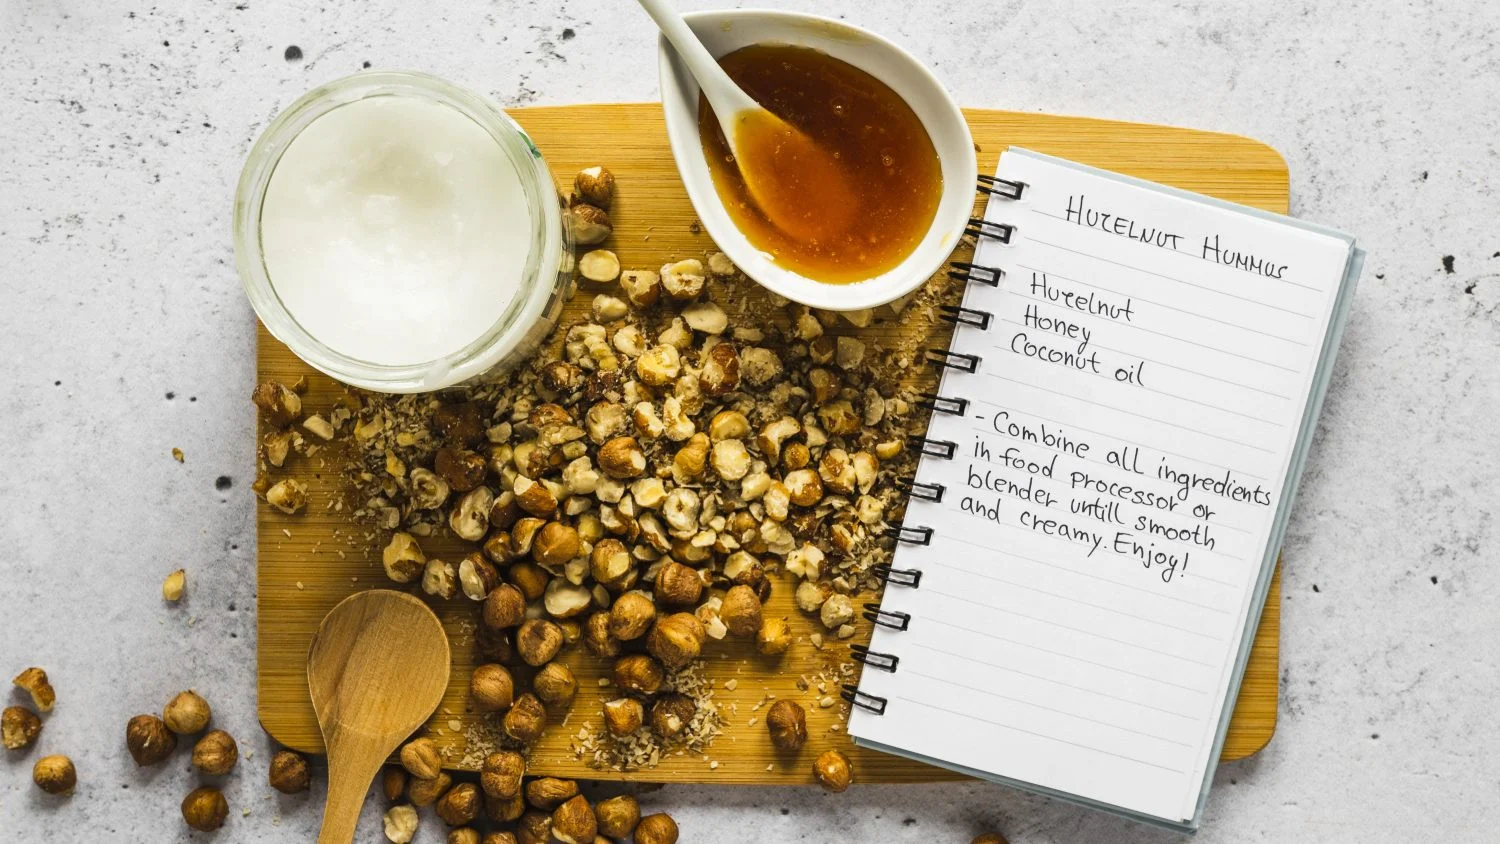 HUZELNUT HUMMUS
Huzelnut
Honey
Coconut oil
- Combine all ingredients
in food processor or
blender untill smooth
and creamy. Enjoy!